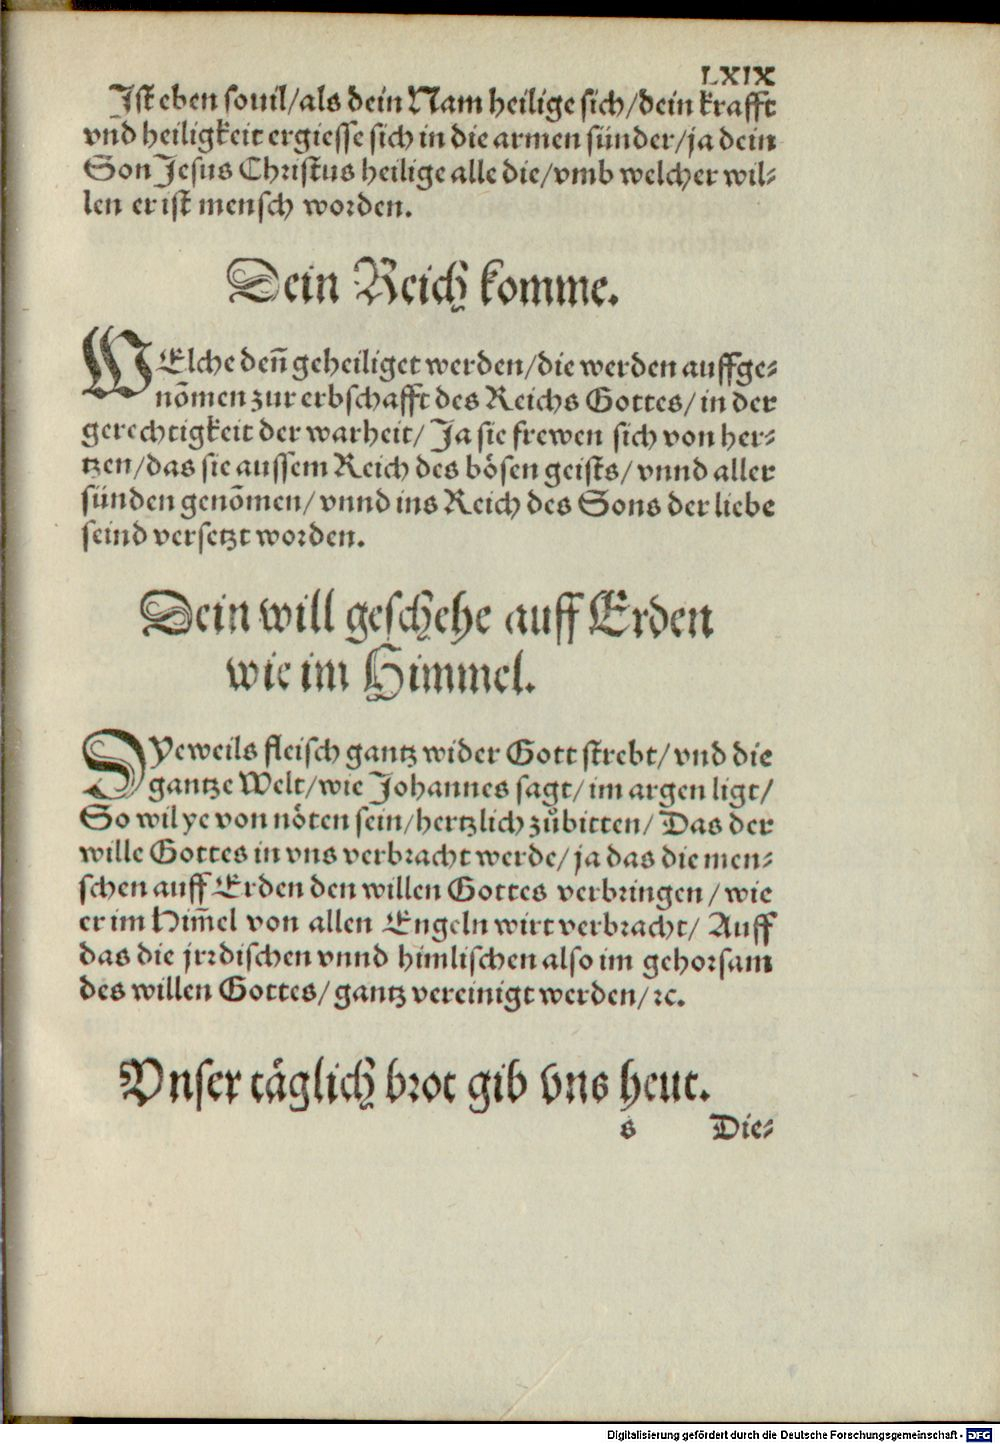 LXIX
Ist eben souil/als dein Nam heilige sich/dein krafft
vnd heiligkeit ergiesse sich in die armen sünder/ja dein
Son Jesus Christus heilige alle die/vmb welcher wil-
len er ist mensch worden.
Dein Reich komme.
WElche deñ geheiliget werden/die werden auffge-
nõmen zur erbschafft des Reichs Gottes/in der
gerechtigkeit der warheit/ Ja sie frewen sich von her-
tzen/das sie aussem Reich des bösen geists/vnnd aller
sünden genõmen/vnnd ins Reich des Sons der liebe
seind versetzt worden.
Dein will geschehe auff Erden
wie im Himmel.
DYeweils fleisch gantz wider Gott strebt/vnd die
gantze Welt/wie Johannes sagt/im argen ligt/
So wil ye von nöten sein/hertzlich zůbitten/ Das der
wille Gottes in vns verbracht werde/ja das die men-
schen auff Erden den willen Gottes verbringen/wie
er im Him̃el von allen Engeln wirt verbracht/ Auff
das die jrrdischen vnnd himlischen also im gehorsam
des willen Gottes/gantz vereinigt werden/ꝛc.
Vnser täglich brot gib vns heut.
s Die-
Digitalisierung gefördert durch die Deutsche Forschungsgemeinschaft - DFG